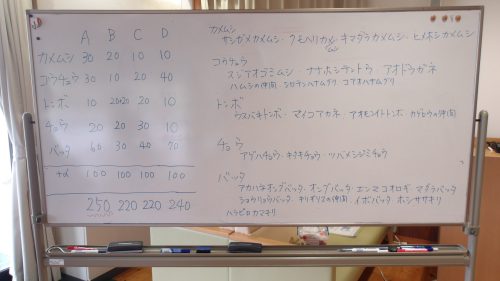 A B C D
カメムシ 30 20 10 10
コウチュウ 30 10 20 40
トンボ 10 20 10
チョウ 20 20 30 10
バッタ 60 30 40 70
+α 100 100 100 100
250 220 220 240
カメムシ
ホシガメカメムシ・クモヘリカメムシ・キマダラカメムシ・ヒメホシカメムシ
コウチュウ
スジアオゴミムシ・ナナホシテントウ・アオドウガネ
ハムシの仲間・シロテンハナムグリ・コアオハナムグリ
トンボ
ウスバキトンボ・マイコアカネ・アオモンイトトンボ・カゲロウの仲間
チョウ
アゲハチョウ・キタキチョウ・ツバメシジミチョウ
バッタ
アカハネオンブバッタ・オンブバッタ・エンマコオロギ・マダラバッタ
ショウリョウバッタ・キリギリスの仲間・イボバッタ・ホシササキリ
ハラビロカマキリ